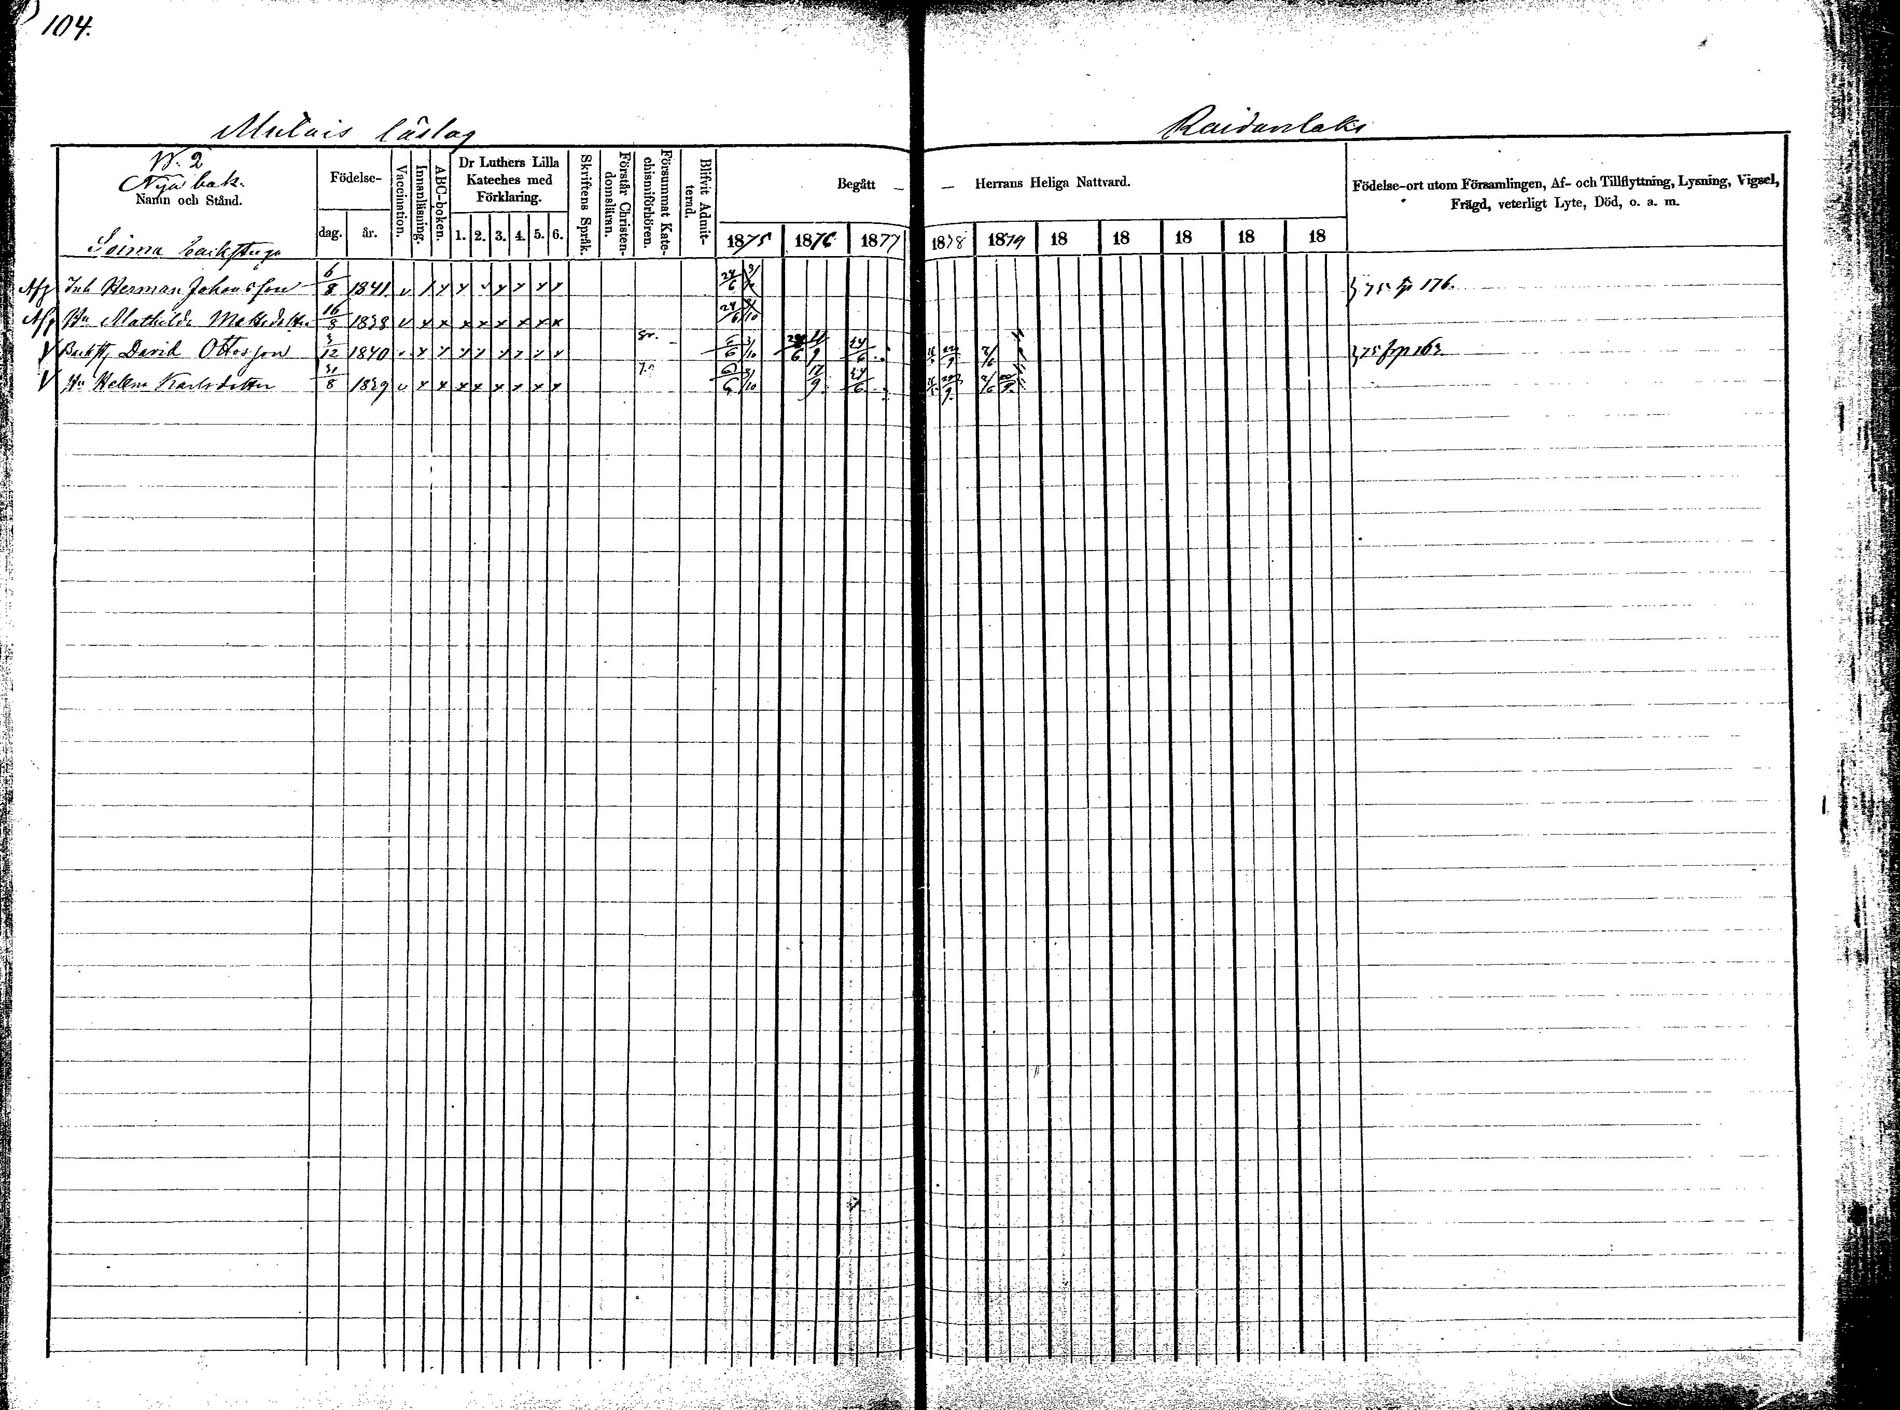 104.
Mulais läslag
Raidanlaks
N. 2
Nyä bak.
Namn och Stånd.
Födelse-
dag. år.
Vaccination.
Innanläsning.
ABC-boken.
Dr Luthers Lilla Kateches med Förklaring.
1. 2. 3. 4. 5. 6.
Skriftens Språk.
Förstår Christendomslärnn.
Försummat Katechismiförhören.
Blifvit Admitterad.
Begått — — Herrans Heliga Nattvard.
1875 1876 1877 1878 1879 18 18 18 18 18
Födelse-ort utom Församlingen, Af- och Tillflyttning, Lysning, Vigsel, Frägd, veterligt Lyte, Död, o. a. m.
Soima backstuga
Inh Herman Johansson 6/8 1841 24/6 75 fr 176.
Hu Mathilda Mattsdotter 16/8 1838 24/6 3/10
Backst. David Ottosson 3/12 1840 6/6 3/10 24/6 24/6 75 frp 163.
Hu Helena Karlsdotter 31/8 1839 6/6 3/10 17/9 24/6